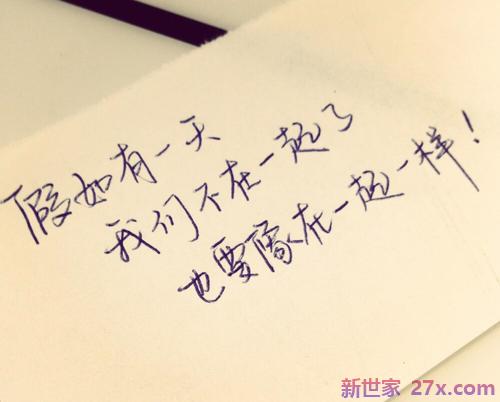 假如有一天
我们不在一起了
也要像在一起一样！
新世家 27x.com